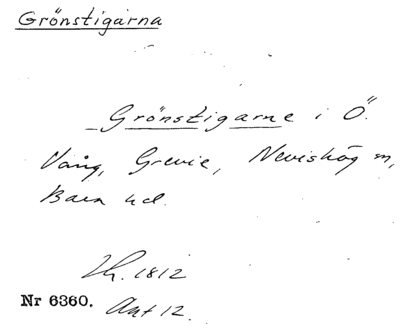 Grönstigarna
Grönstigarne i Ö.
Vång, Grevie, Nevishög m,
Bara hd.
Lh. 1812
Nr 6360. Akt 12.